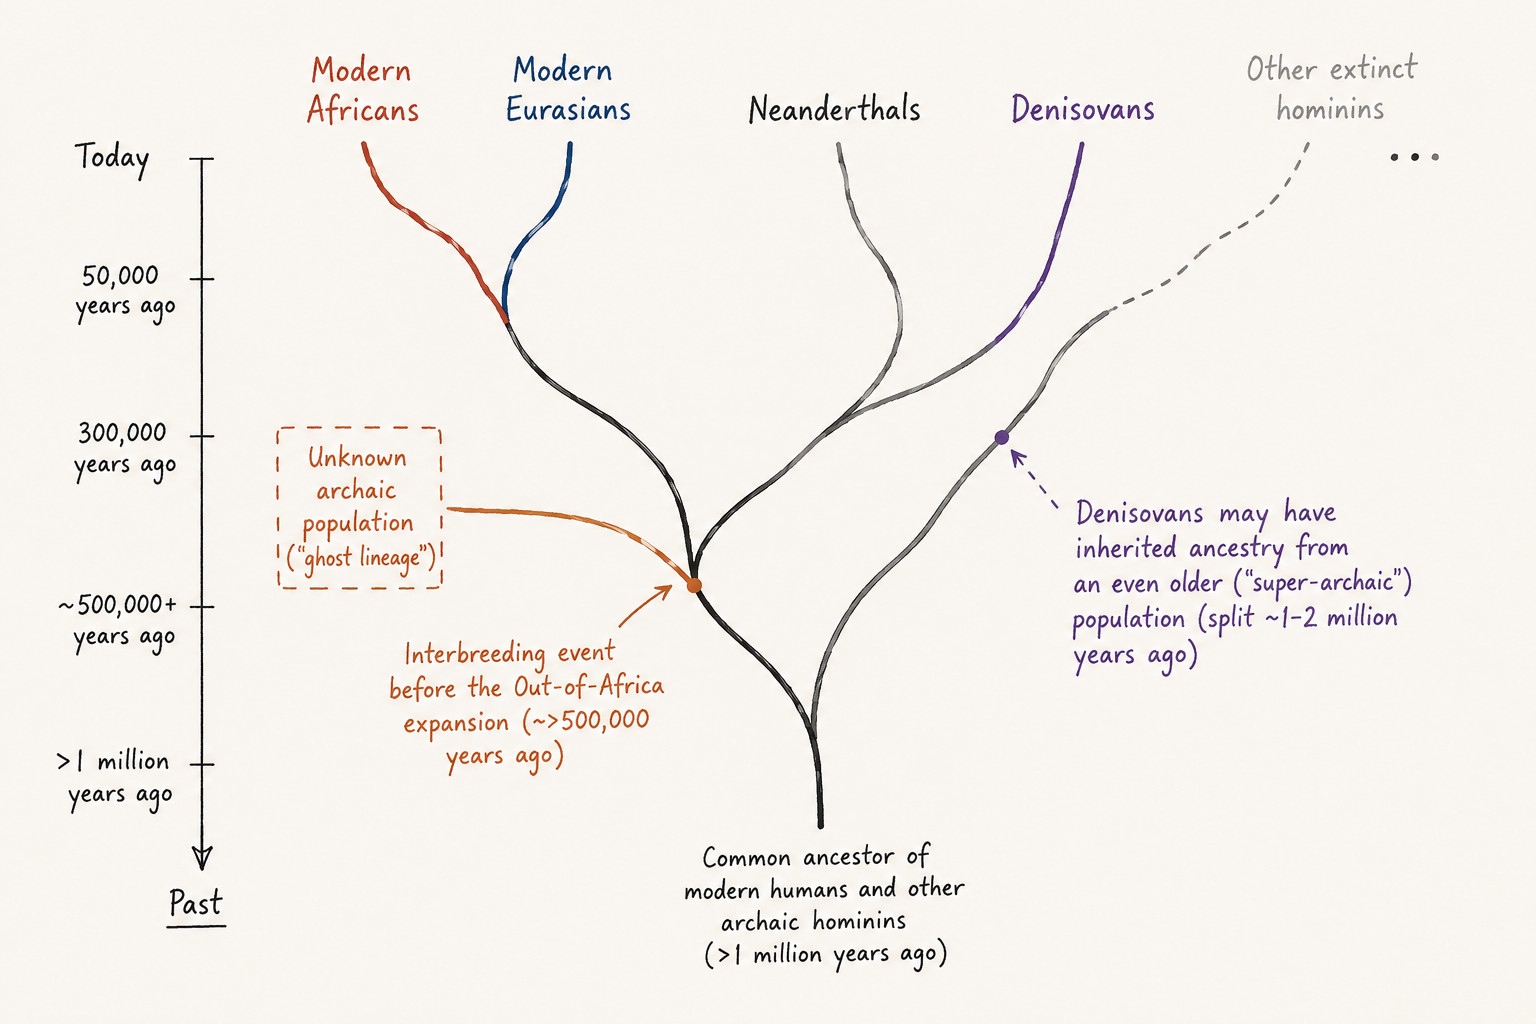 Modern
Africans
Modern
Eurasians
Neanderthals
Denisovans
Other extinct
hominins
Today
50,000
years ago
300,000
years ago
~500,000+
years ago
>1 million
years ago
Past
Unknown
archaic
population
("ghost lineage")
Interbreeding event
before the Out-of-Africa
expansion (~>500,000
years ago)
Denisovans may have
inherited ancestry from
an even older ("super-archaic")
population (split ~1-2 million
years ago)
Common ancestor of
modern humans and other
archaic hominins
(>1 million years ago)